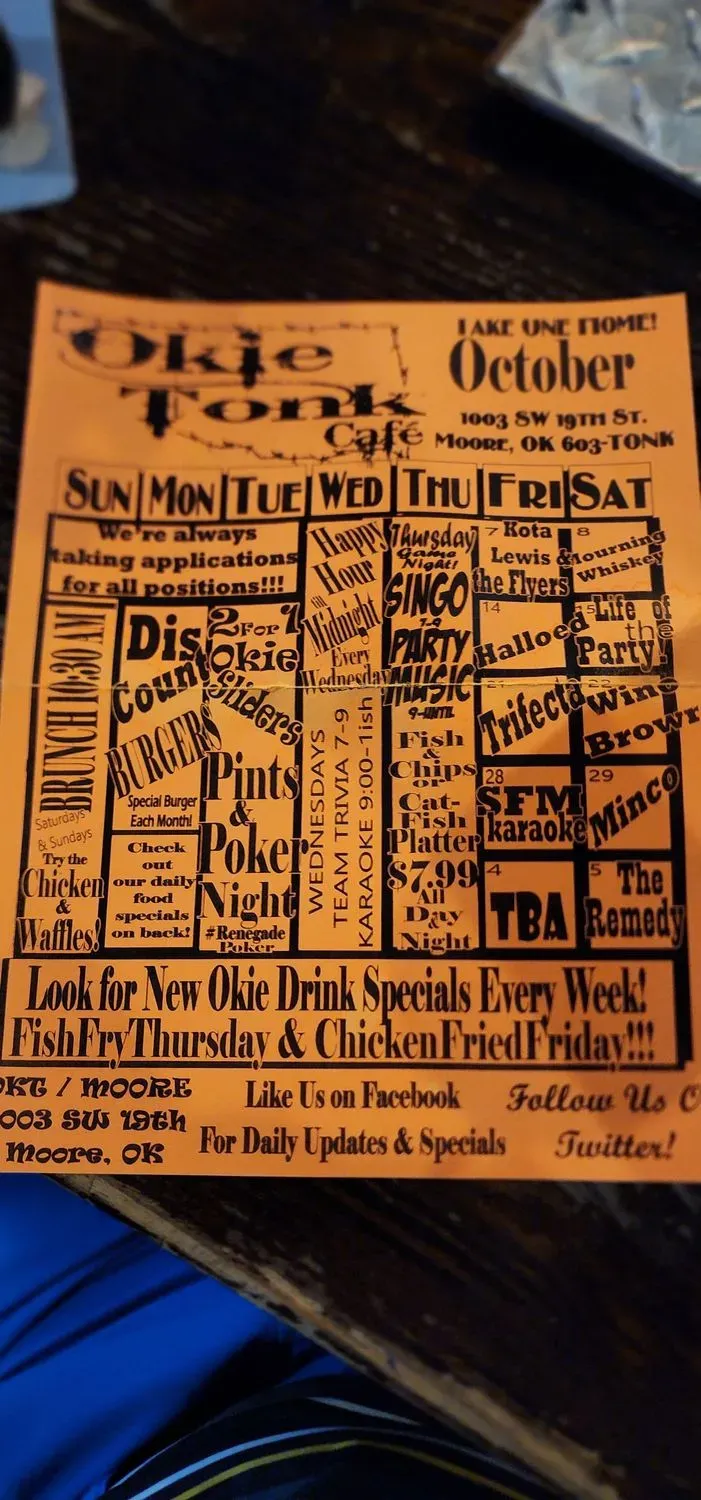 TAKE ONE HOME!
Okie
Tonk
Café
October
1003 SW 19TH ST.
MOORE, OK 603-TONK
SUN MON TUE WED THU FRI SAT
We're always
taking applications
for all positions!!!
BRUNCH 10:30 AM
Saturdays
& Sundays
Try the
Chicken
&
Waffles!
Dis
Count
BURGERS
Special Burger
Each Month!
Check
out
our daily
food
specials
on back!
2 For 1
Okie
Sliders
Pints
&
Poker
Night
#Renegade
Poker
Happy
Hour
till
Midnight
Every
Wednesday
WEDNESDAYS
TEAM TRIVIA 7-9
KARAOKE 9:00-1ish
Thursday
Game
Night!
SINGO
7-9
PARTY
MUSIC
9-UNTIL
Fish
&
Chips
or
Cat-
Fish
Platter
$7.99
All
Day
&
Night
7 Kota
Lewis &
the Flyers
8
Mourning
Whiskey
14
Halloed
15 Life of
the
Party!
21
Trifecta
22
Wino
Brown
28
SFM
karaoke
29
Minco
4
TBA
5 The
Remedy
Look for New Okie Drink Specials Every Week!
FishFryThursday & ChickenFriedFriday!!!
OKT / MOORE
1003 SW 19th
Moore, OK
Like Us on Facebook
For Daily Updates & Specials
Follow Us O
Twitter!